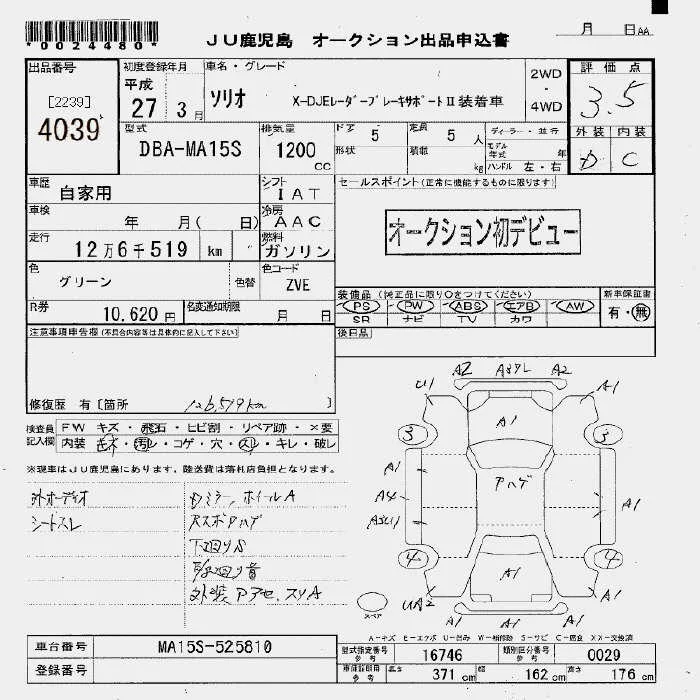 *0024480*
JU鹿児島 オークション出品申込書
月 日AA
出品番号
[2239]
4039
初度登録年月
平成
27 3月
車名・グレード
ソリオ X-DJEレーダーブレーキサポートⅡ装着車
2WD
・
4WD
評価点
3.5
外装 内装
D C
型式
DBA-MA15S
排気量
1200
cc
ドア 5
定員 5 人
形状
積載 kg
ディーラー・並行
モデル年式 年
ハンドル 左・右
車歴 自家用
シフト IAT
車検 年 月( 日)
冷房 AAC
走行 12万6千519 km
燃料 ガソリン
色 グリーン
色替
色コード ZVE
R券 10,620円
名変通知期限 月 日
セールスポイント(正常に機能するものに限ります)
オークション初デビュー
装備品(純正品に限り○をつけてください)
PS PW ABS エアB AW
SR ナビ TV カワ
新車保証書
有・無
後日品
注意事項申告欄(不具合内容等は具体的に記入して下さい)
修復歴 有〔箇所 126,519km 〕
検査員記入欄
FW キズ・飛石・ヒビ割・リペア跡・×要
内装 キズ・汚レ・コゲ・穴・スレ・キレ・破レ
※現車はJU鹿児島にあります、陸送費は落札店負担となります。
外オーディオ
シートスレ
Dミラー,ホイールA
下回りS
外装
U1 A2 A2 A1
A1
3 3
A1 Aハゲ
A4 A1
4 4
A1
UA2 A1 A1
スペア
A-キズ E-エクボ U-凹み W-補修跡 S-サビ C-腐食 XX-交換済
車台番号 MA15S-525810
登録番号
型式指定番号 参考 16746
類別区分番号 参考 0029
車検証明用 参考 長さ 371 cm 幅 162 cm 高さ 176 cm